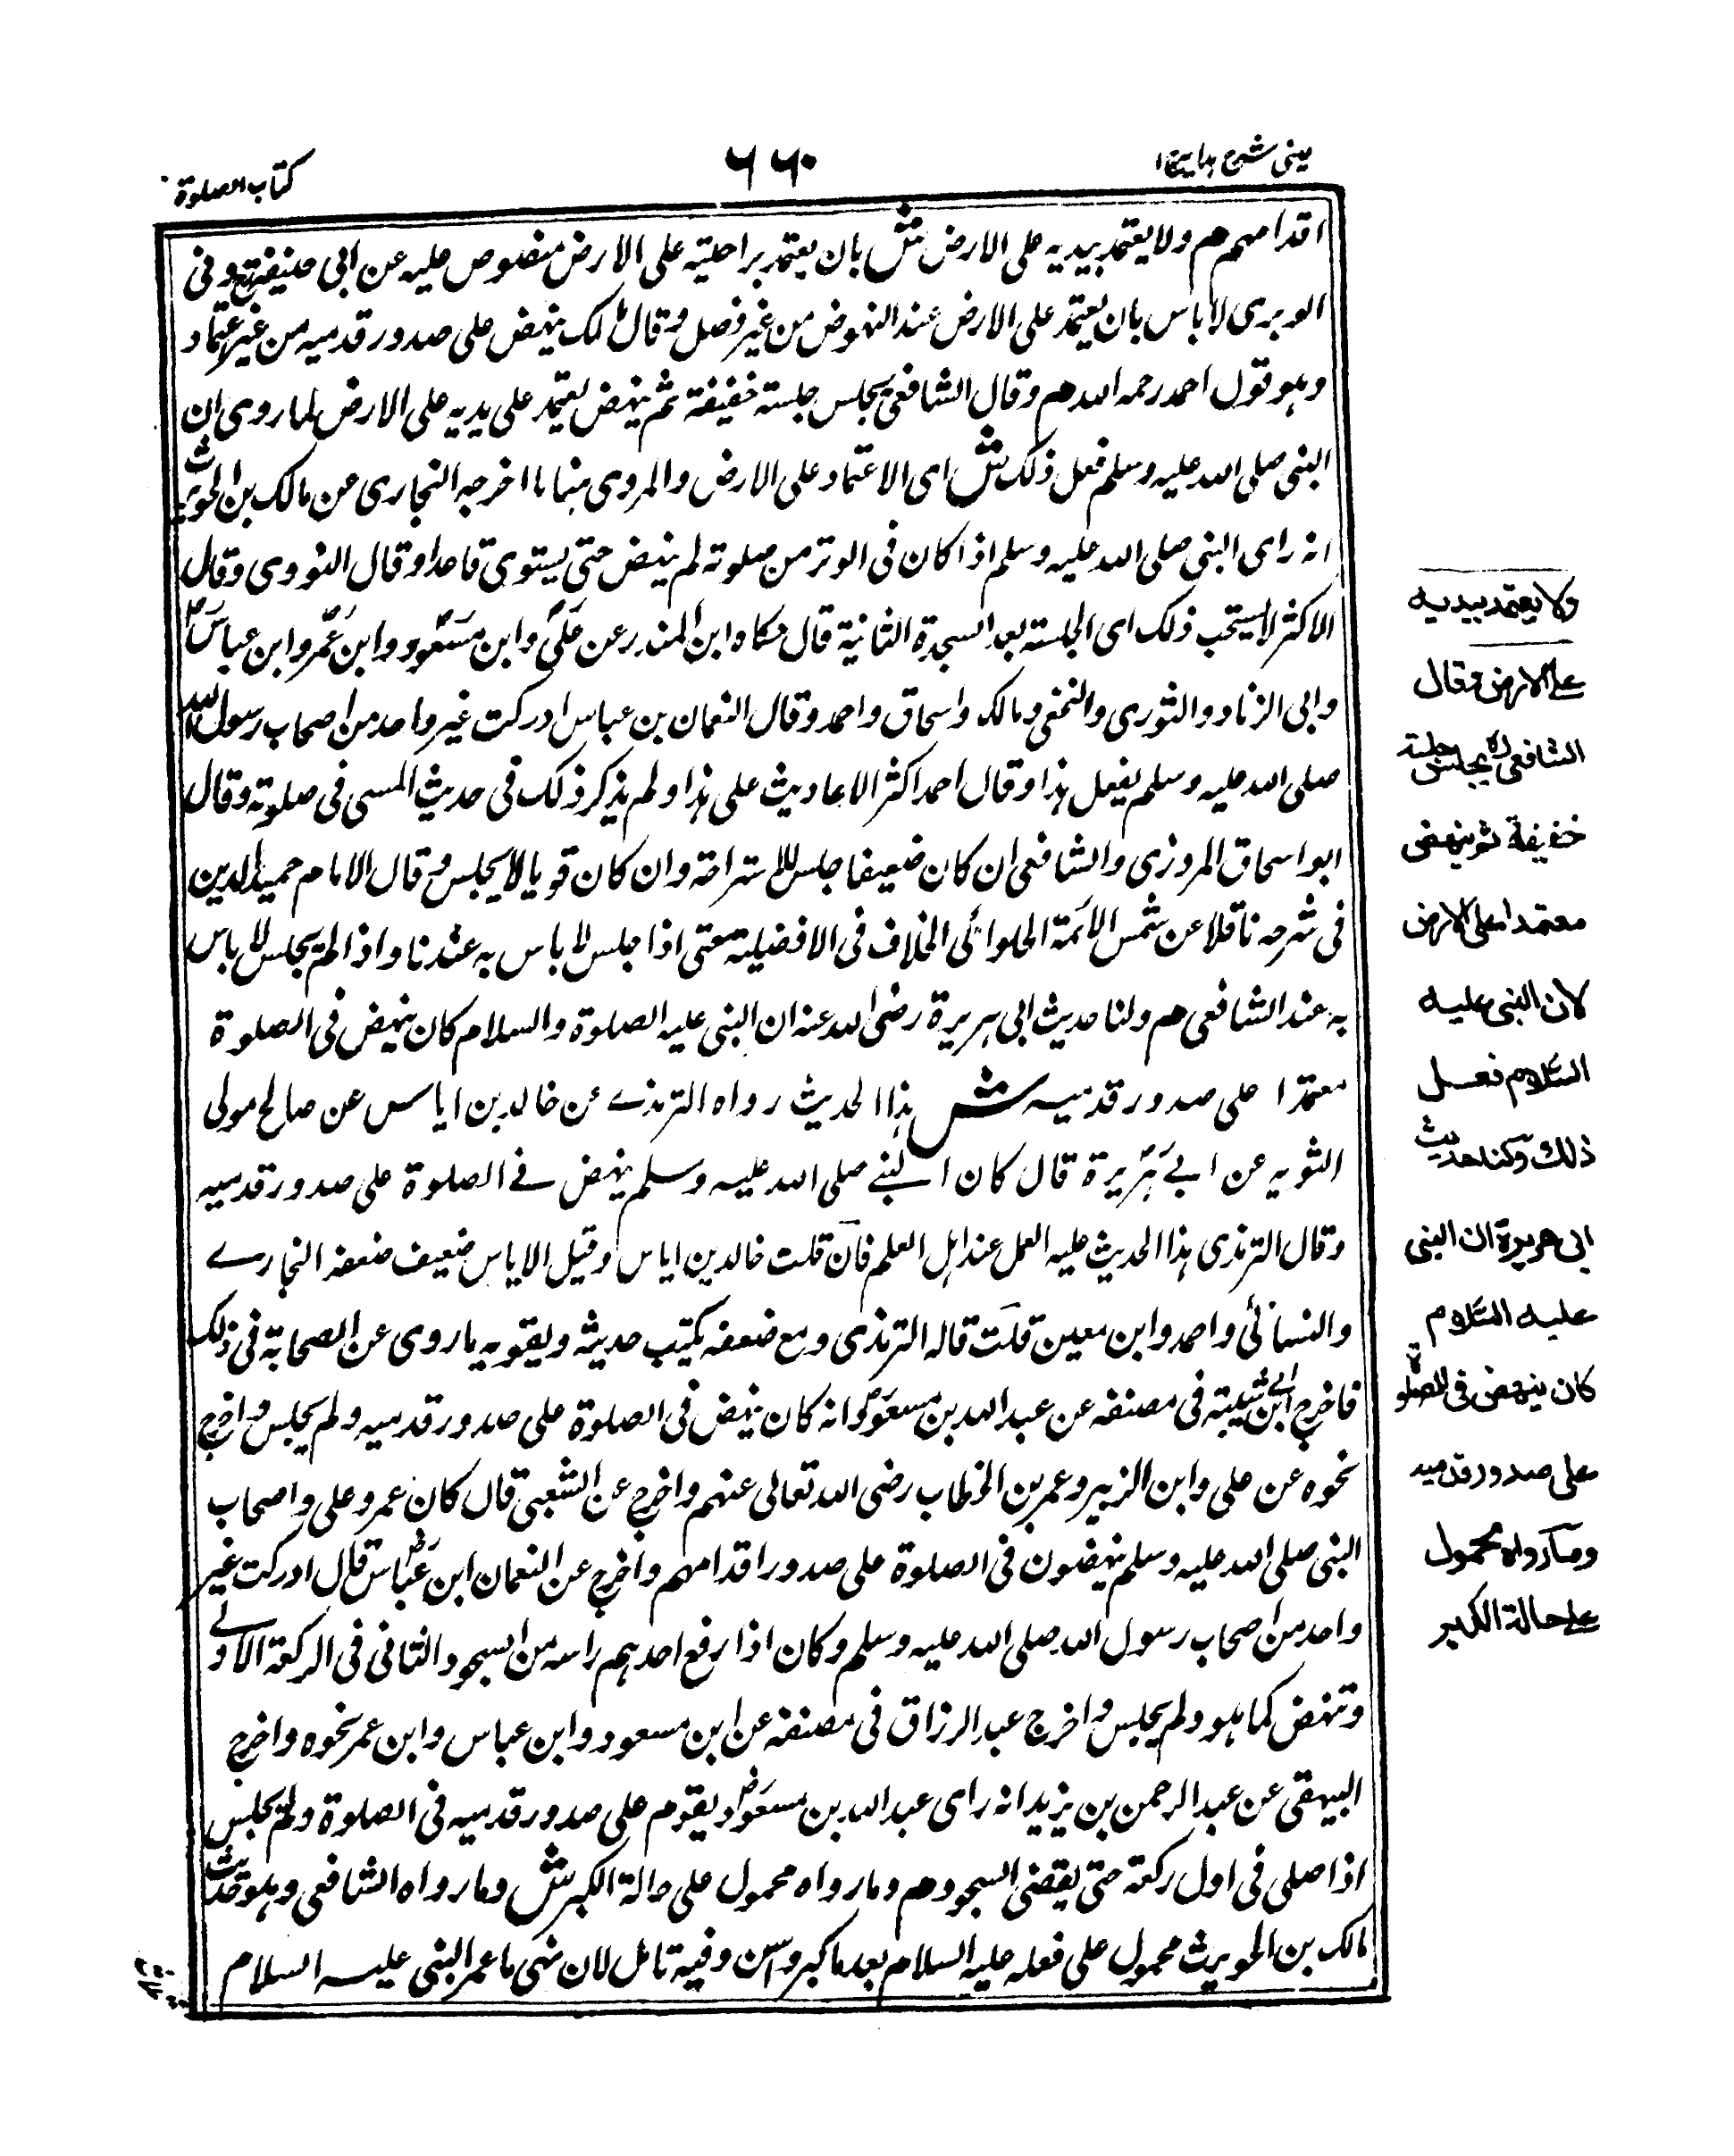 عینی شرح ہدایہ ج۱
۶۶۰
کتاب الصلوة
اقدامهم م ولا یعتمد بیدیه علی الارض ش بان یعتمد براحتیه علی الارض منصوص علیه عن ابی حنیفة وفی
الوبری لا باس بان یعتمد علی الارض عند النهوض من غیر فصل وقال مالک ینهض علی صدور قدمیه من غیر اعتماد
وهو قول احمد رحمه الله م وقال الشافعی یجلس جلسته خفیفة ثم ینهض یعتمد علی یدیه علی الارض لما روی ان
النبی صلی الله علیه وسلم فعل ذلک ش ای الاعتماد علی الارض والمروی هنا ما اخرجه البخاری عن مالک بن الحویرث
انه رای النبی صلی الله علیه وسلم اذا کان فی الوتر من صلوته لم ینهض حتی یستوی قاعدا وقال النووی وقال
الاکثر لا یستحب ذلک ای الجلسة بعد السجدة الثانیة قال حکاه ابن المنذر عن علی وابن مسعود وابن عمر وابن عباس
وابی الزناد والثوری والنخعی ومالک واسحاق واحمد وقال النعمان بن عباس ادرکت غیر واحد من اصحاب رسول الله
صلی الله علیه وسلم یفعل هذا وقال احمد اکثر الاحادیث علی هذا ولم یذکر ذلک فی حدیث المسی فی صلوته وقال
ابو اسحاق المروزی والشافعی ان کان ضعیفا جلس للاستراحة وان کان قویا لا یجلس وقال الامام حمید الدین
فی شرحه ناقلا عن شمس الائمة الحلوائی الخلاف فی الافضلیة حتی اذا جلس لا باس به عندنا واذا لم یجلس لا باس
به عند الشافعی م ولنا حدیث ابی هریرة رضی الله عنه ان النبی علیه الصلوة والسلام کان ینهض فی الصلوة
معتمدا علی صدور قدمیه ش هذا الحدیث رواه الترمذی عن خالد بن ایاس عن صالح مولی
التومیه عن ابی هریرة قال کان النبی صلی الله علیه وسلم ینهض فی الصلوة علی صدور قدمیه
وقال الترمذی هذا الحدیث علیه العمل عند اهل العلم فان قلت خالد بن ایاس وقیل الایاس ضعیف ضعفه البخاری
والنسائی واحمد وابن معین قلت قاله الترمذی ومع ضعفه یکتب حدیثه ویقویه ما روی عن الصحابة فی ذلک
فاخرج ابن ابی شیبة فی مصنفه عن عبد الله بن مسعود انه کان ینهض فی الصلوة علی صدور قدمیه ولم یجلس واخرج
نحوه عن علی وابن الزبیر وعمر بن الخطاب رضی الله تعالی عنهم واخرج عن الشعبی قال کان عمر وعلی واصحاب
النبی صلی الله علیه وسلم ینهضون فی الصلوة علی صدور اقدامهم واخرج عن النعمان ابن عباس قال ادرکت غیر
واحد من اصحاب رسول الله صلی الله علیه وسلم وکان اذا رفع احدهم راسه من السجود الثانی فی الرکعة الاولی
وتنهض کما هو ولم یجلس واخرج عبد الرزاق فی مصنفه عن ابن مسعود وابن عباس وابن عمر نحوه واخرج
البیهقی عن عبد الرحمن بن یزید انه رای عبد الله بن مسعود یقوم علی صدور قدمیه فی الصلوة ولم یجلس
اذا صلی فی اول رکعة حتی یقضی السجود م وما رواه محمول علی حالة الکبر ش وما رواه الشافعی وهو حدیث
مالک بن الحویرث محمول علی فعله علیه السلام بعد ما کبر واسن وفیه تامل لان منهی ما عمر النبی علیه السلام
ولا یعتمد بیدیه
علی الارض وقال
الشافعی رہ یجلس جلسة
خفیفة ثم ینهض
معتمدا علی الارض
لان النبی علیه
السلام فعل
ذلک ولنا حدیث
ابی هریرة ان النبی
علیه السلام
کان ینهض فی الصلوة
علی صدور قدمیه
وما رواه محمول
علی حالة الکبر